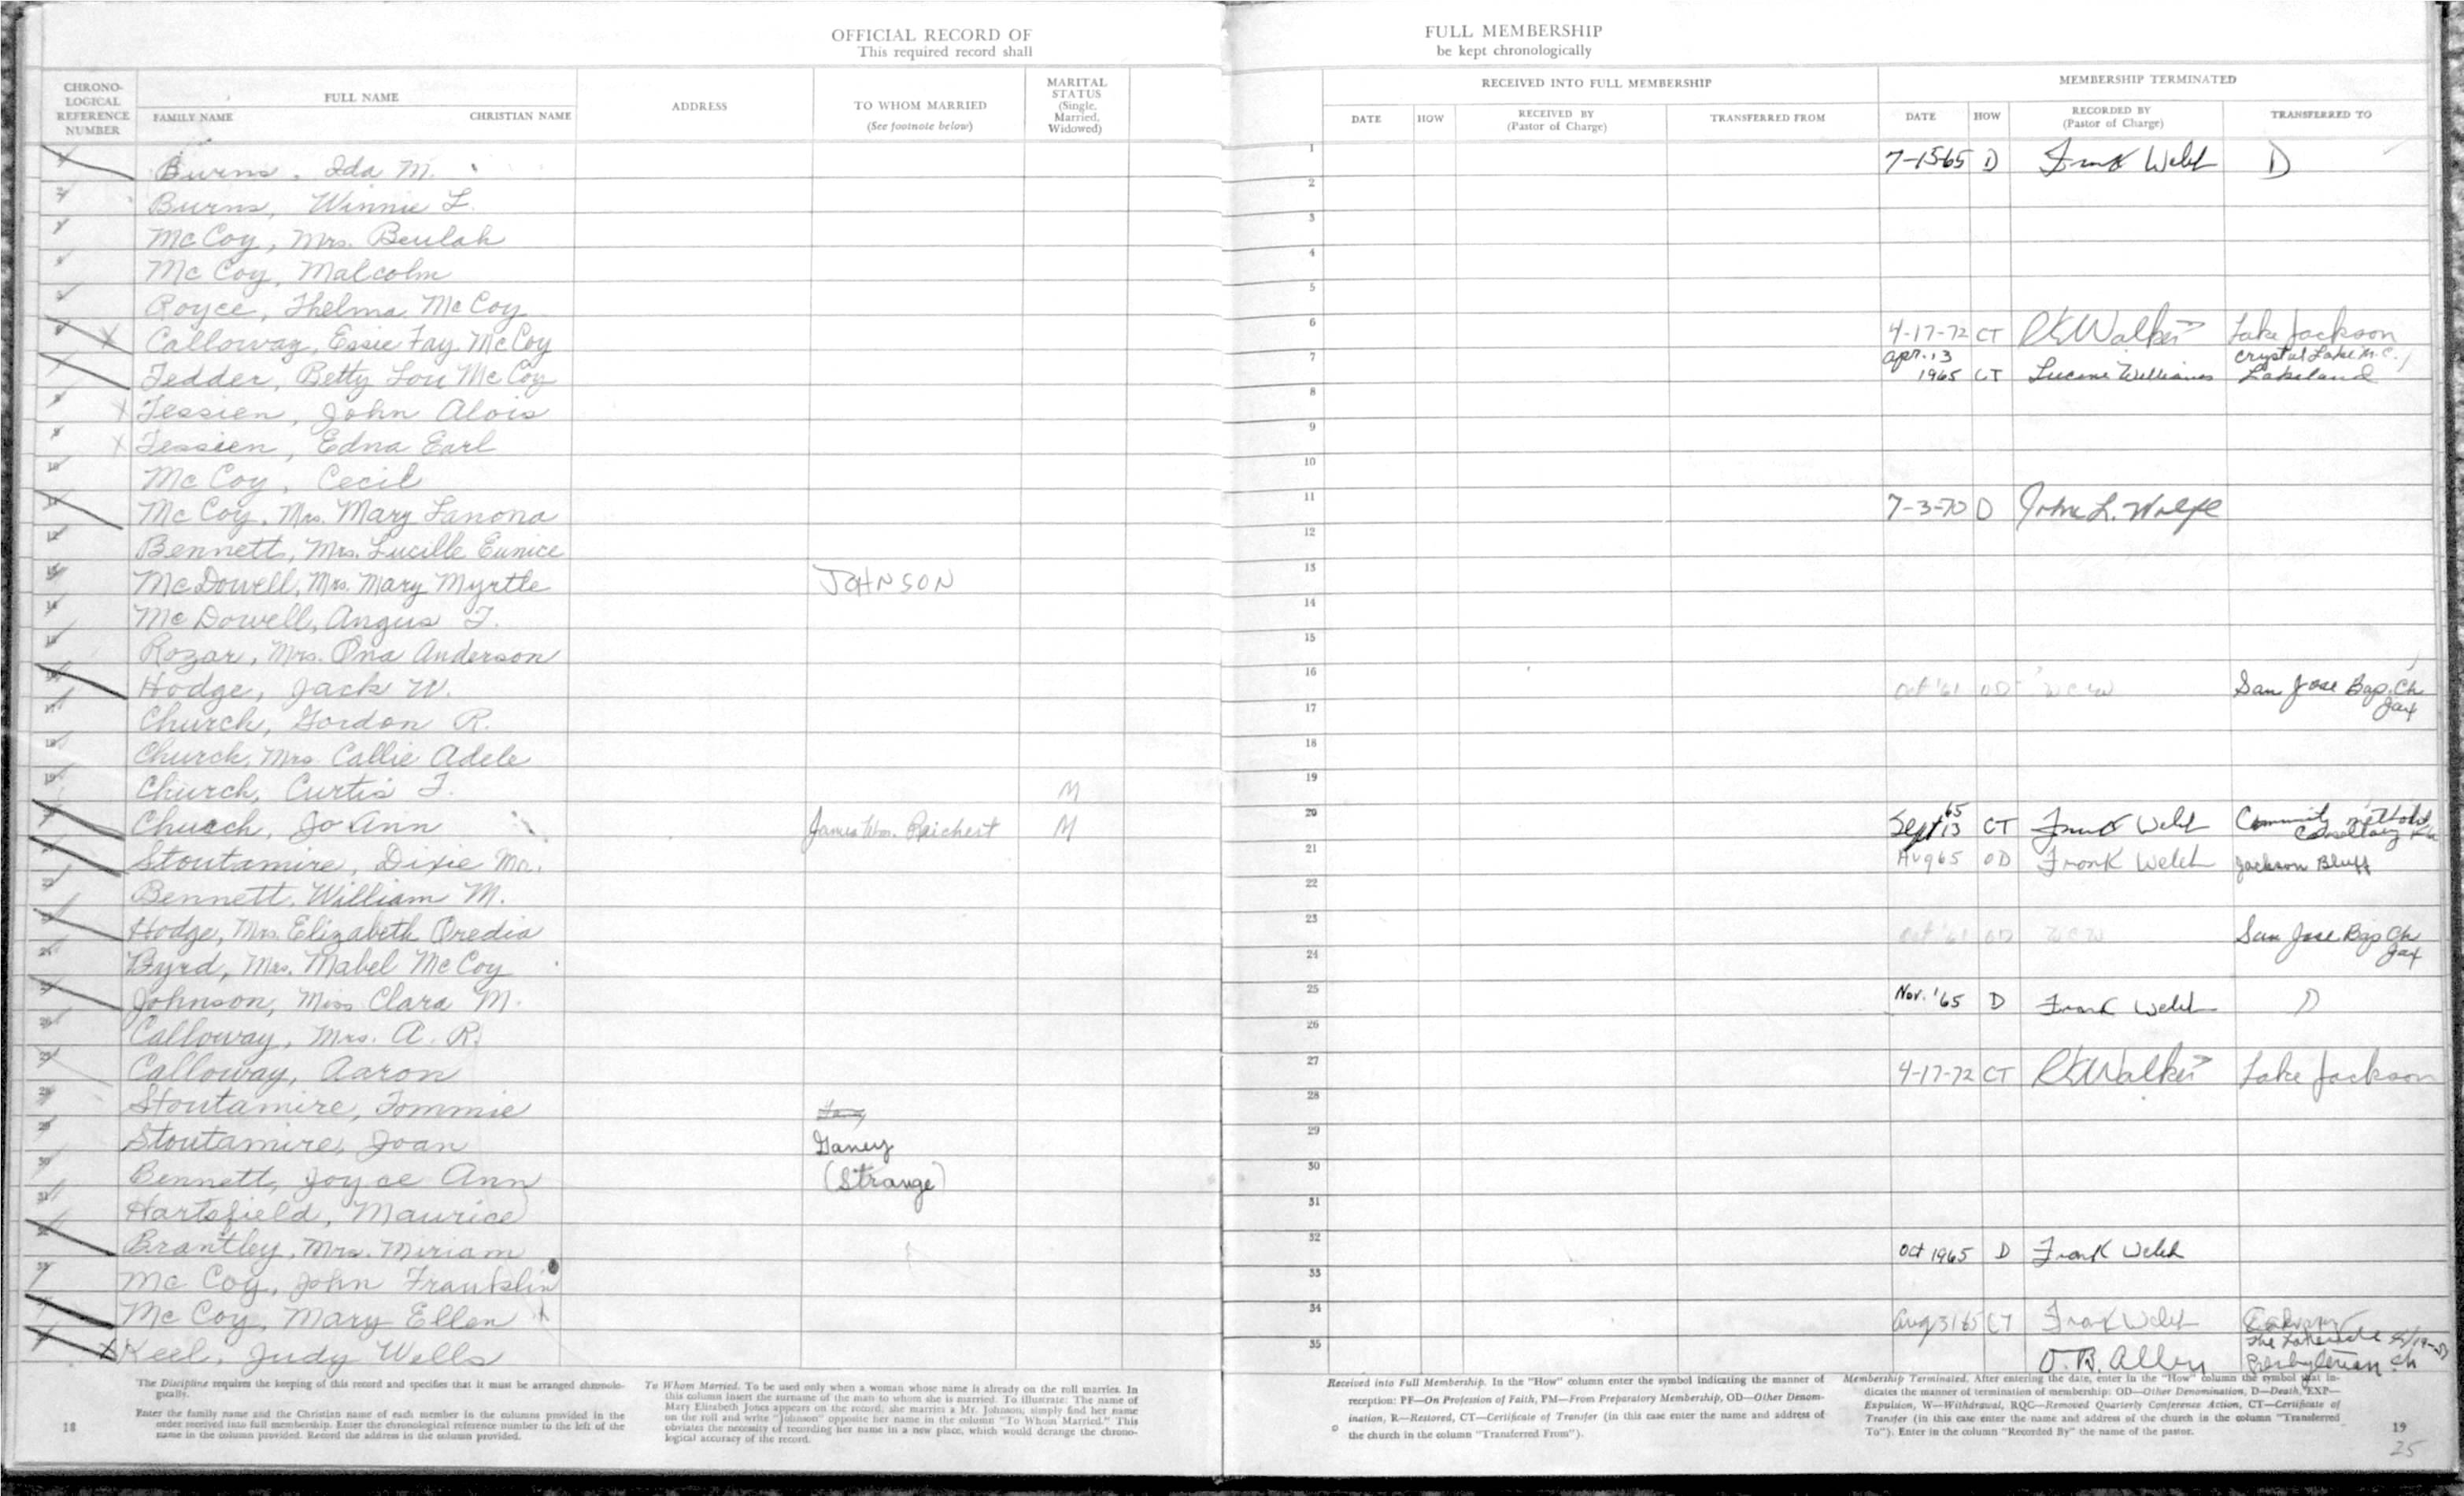 OFFICIAL RECORD OF FULL MEMBERSHIP
This required record shall be kept chronologically
CHRONO-LOGICAL REFERENCE NUMBER FULL NAME FAMILY NAME CHRISTIAN NAME ADDRESS TO WHOM MARRIED (See footnote below) MARITAL STATUS (Single, Married, Widowed)
RECEIVED INTO FULL MEMBERSHIP MEMBERSHIP TERMINATED
DATE HOW RECEIVED BY (Pastor of Charge) TRANSFERRED FROM DATE HOW RECORDED BY (Pastor of Charge) TRANSFERRED TO
1 Burns, Ida M. 7-15-65 D Frank Welch D
2 Burns, Winnie L.
3 McCoy, Mrs. Beulah
4 McCoy, Malcolm
5 Royce, Thelma McCoy
6 Calloway, Essie Fay McCoy 4-17-72 CT RK Walker Lake Jackson
7 Tedder, Betty Lou McCoy Apr. 13 1965 CT Williams Crystal Lake M.C. Lakeland
8 Tessien, John Alois
9 Tessien, Edna Earl
10 McCoy, Cecil
11 McCoy, Mrs. Mary Lanona 7-3-70 D John L. Wolfe
12 Bennett, Mrs. Lucille Eunice
13 McDowell, Mrs. Mary Myrtle JOHNSON
14 McDowell, Angus T.
15 Rozar, Mrs. Ona Anderson
16 Hodge, Jack W. Oct '61 OD WCW San Jose Bap. Ch Jax
17 Church, Gordon R.
18 Church, Mrs. Callie Adele
19 Church, Curtis T. M
20 Church, Jo Ann James Wm. Reichert M Sept 13 65 CT Frank Welch Community
21 Stoutamire, Dixie Mr. Aug 65 OD Frank Welch Jackson Bluff
22 Bennett, William M.
23 Hodge, Mrs. Elizabeth Oredia Oct '61 OD WCW San Jose Bap Ch Jax
24 Byrd, Mrs. Mabel McCoy
25 Johnson, Miss Clara M. Nov. '65 D Frank Welch D
26 Calloway, Mrs. A. R.
27 Calloway, Aaron 4-17-72 CT RK Walker Lake Jackson
28 Stoutamire, Tommie
29 Stoutamire, Joan Ganey
30 Bennett, Joyce Ann (Strange)
31 Hartsfield, Maurice
32 Brantley, Mrs. Miriam Oct 1965 D Frank Welch
33 McCoy, John Franklin
34 McCoy, Mary Ellen Aug 31 65 CT Frank Welch
35 Keel, Judy Wells O. B. Alley The Lakeside Presbyterian Ch
The Discipline requires the keeping of this record and specifies that it must be arranged chronolo-
gically.
Enter the family name and the Christian name of each member in the columns provided in the
order received into full membership. Enter the chronological reference number to the left of the
name in the column provided. Record the address in the column provided.
18
To Whom Married. To be used only when a woman whose name is already on the roll marries. In
this column insert the surname of the man to whom she is married. To illustrate: The name of
Mary Elizabeth Jones appears on the record; she marries a Mr. Johnson; simply find her name
on the roll and write "Johnson" opposite her name in the column "To Whom Married." This
obviates the necessity of recording her name in a new place, which would derange the chrono-
logical accuracy of the record.
Received into Full Membership. In the "How" column enter the symbol indicating the manner of
reception: PF—On Profession of Faith, PM—From Preparatory Membership, OD—Other Denom-
ination, R—Restored, CT—Certificate of Transfer (in this case enter the name and address of
the church in the column "Transferred From").
Membership Terminated. After entering the date, enter in the "How" column the symbol that in-
dicates the manner of termination of membership: OD—Other Denomination, D—Death, EXP—
Expulsion, W—Withdrawal, RQC—Removed Quarterly Conference Action, CT—Certificate of
Transfer (in this case enter the name and address of the church in the column "Transferred
To"). Enter in the column "Recorded By" the name of the pastor.
19
25